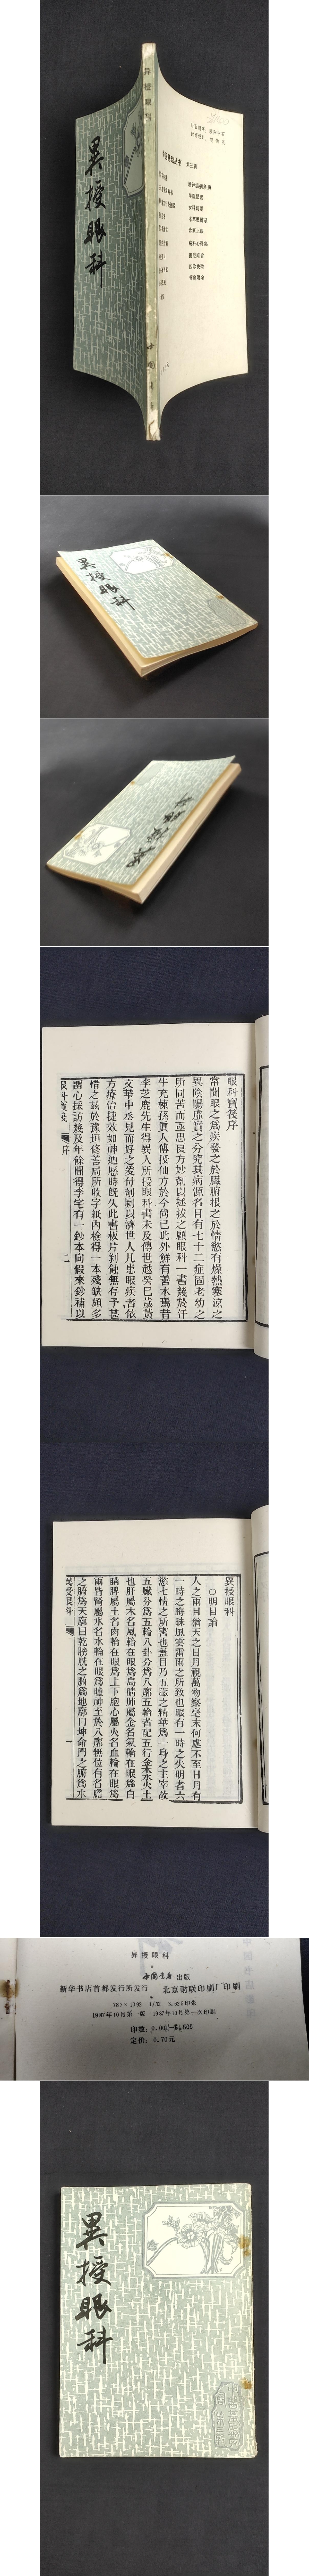 異授眼科
异授眼科
中国书店
中医基础丛书 第三辑
女科切要
医经溯洄
異授眼科
異授眼科
眼科寶筏序
常聞眼之爲疾發之於臟腑根之於情慾有燥熱寒涼之
異陰陽虛實之分究其病源名目有七十二症固老幼之
所同苦而亟思良方妙劑以拯拔之顧眼科一書幾於汗
牛充棟孫眞人傳授仙方於今尚已此外鮮有善本焉昔
李芝鹿先生得異人所授眼科書未及傳世越癸巳歲黃
文華中丞見而好之爰付剞劂以濟世人凡患眼疾者依
方療治捷效如神遞歷時旣久此書板片剝蝕無存予甚
惜之茲於豫垣修善局所收字紙內檢得一本殘缺頗多
瀏心採訪幾及年餘聞得李宅有一鈔本向假來鈔補以
眼科寶筏
序
二
異授眼科
○明目論
人之兩目猶天之日月視萬物察毫末何處不至日月有
一時之晦昧風雲雷雨之所致也眼有一時之失明者六
慾七情之所害也蓋目乃五臟之精華爲一身之主宰故
五臟分爲五輪八卦分爲八廓五輪者配五行金木水火土
也肝屬木名風輪在眼爲烏睛肺屬金名氣輪在眼爲白
睛脾屬土名肉輪在眼爲上下胞心屬火名血輪在眼爲
兩眥腎屬水名水輪在眼爲瞳神至於八廓無位有名膽
之腑爲天廓曰乾膀胱之腑爲地廓曰坤命門之腑爲水
異授眼科
一
异授眼科
中国书店 出版
新华书店首都发行所发行 北京财联印刷厂印刷
787×1092 1/32 5.625印张
1987年10月第一版 1987年10月第一次印刷
印数：0.001—5,500
定价：0.70元
異授眼科